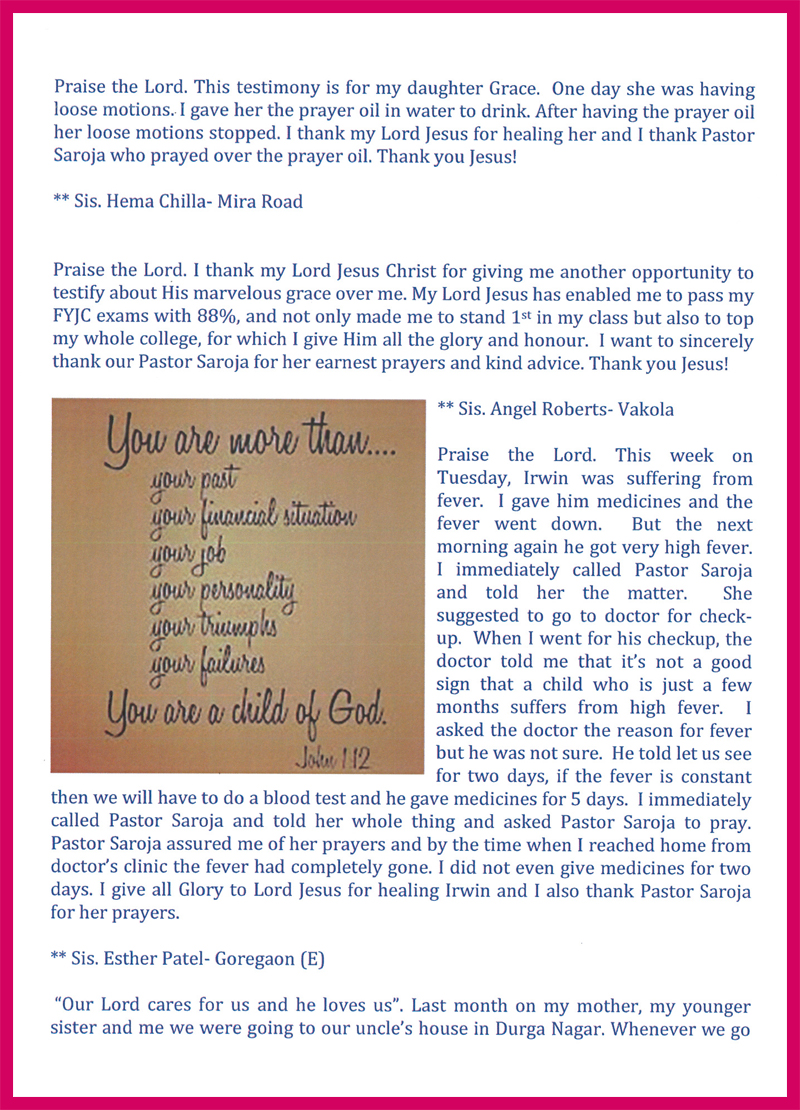 Praise the Lord. This testimony is for my daughter Grace. One day she was having
loose motions. I gave her the prayer oil in water to drink. After having the prayer oil
her loose motions stopped. I thank my Lord Jesus for healing her and I thank Pastor
Saroja who prayed over the prayer oil. Thank you Jesus!
** Sis. Hema Chilla- Mira Road
Praise the Lord. I thank my Lord Jesus Christ for giving me another opportunity to
testify about His marvelous grace over me. My Lord Jesus has enabled me to pass my
FYJC exams with 88%, and not only made me to stand 1st in my class but also to top
my whole college, for which I give Him all the glory and honour. I want to sincerely
thank our Pastor Saroja for her earnest prayers and kind advice. Thank you Jesus!
** Sis. Angel Roberts- Vakola
You are more than....
your past
your financial situation
your job
your personality
your triumphs
your failures
You are a child of God.
John 1:12
Praise the Lord. This week on
Tuesday, Irwin was suffering from
fever. I gave him medicines and the
fever went down. But the next
morning again he got very high fever.
I immediately called Pastor Saroja
and told her the matter. She
suggested to go to doctor for check-
up. When I went for his checkup, the
doctor told me that it's not a good
sign that a child who is just a few
months suffers from high fever. I
asked the doctor the reason for fever
but he was not sure. He told let us see
for two days, if the fever is constant
then we will have to do a blood test and he gave medicines for 5 days. I immediately
called Pastor Saroja and told her whole thing and asked Pastor Saroja to pray.
Pastor Saroja assured me of her prayers and by the time when I reached home from
doctor's clinic the fever had completely gone. I did not even give medicines for two
days. I give all Glory to Lord Jesus for healing Irwin and I also thank Pastor Saroja
for her prayers.
** Sis. Esther Patel- Goregaon (E)
“Our Lord cares for us and he loves us”. Last month on my mother, my younger
sister and me we were going to our uncle's house in Durga Nagar. Whenever we go